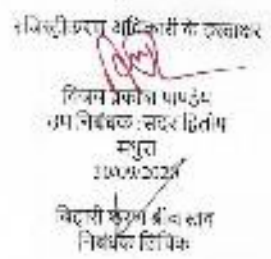 रजिस्ट्रीकरण अधिकारी के हस्ताक्षर
विजय प्रकाश पाण्डेय
उप निबंधक : सदर द्वितीय
मथुरा
30/09/202
बिहारी शरण श्रीवास्तव
निबंधक लिपिक